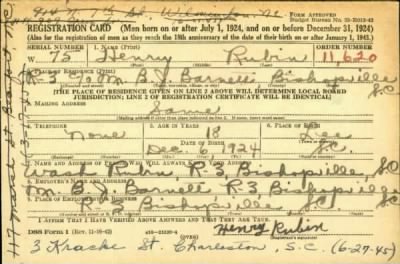 REGISTRATION CARD (Men born on or after July 1, 1924, and on or before December 31, 1924)
(Also for the registration of men as they reach the 18th anniversary of the date of their birth on or after January 1, 1943.)
SERIAL NUMBER 1. NAME (Print) ORDER NUMBER
W 75 Henry Rubin 11,620
2. PLACE OF RESIDENCE (Print)
R-3 % Mr B J Barnett Bishopville S.C
[THE PLACE OF RESIDENCE GIVEN ON LINE 2 ABOVE WILL DETERMINE LOCAL BOARD
JURISDICTION; LINE 2 OF REGISTRATION CERTIFICATE WILL BE IDENTICAL]
3. MAILING ADDRESS
Same
4. TELEPHONE 5. AGE IN YEARS 6. PLACE OF BIRTH
None 18 Lee
DATE OF BIRTH
Dec. 6, 1924 S.C.
7. NAME AND ADDRESS OF PERSON WHO WILL ALWAYS KNOW YOUR ADDRESS
Rubin R-3 Bishopville, S.C
8. EMPLOYER'S NAME AND ADDRESS
Mr B J Barnett R3 Bishopville
9. PLACE OF EMPLOYMENT OR BUSINESS
R-3 Bishopville S.C
I AFFIRM THAT I HAVE VERIFIED ABOVE ANSWERS AND THAT THEY ARE TRUE.
DSS Form 1 (OVER) Henry Rubin
3 Kracke St. Charleston, S.C. (6-27-45)